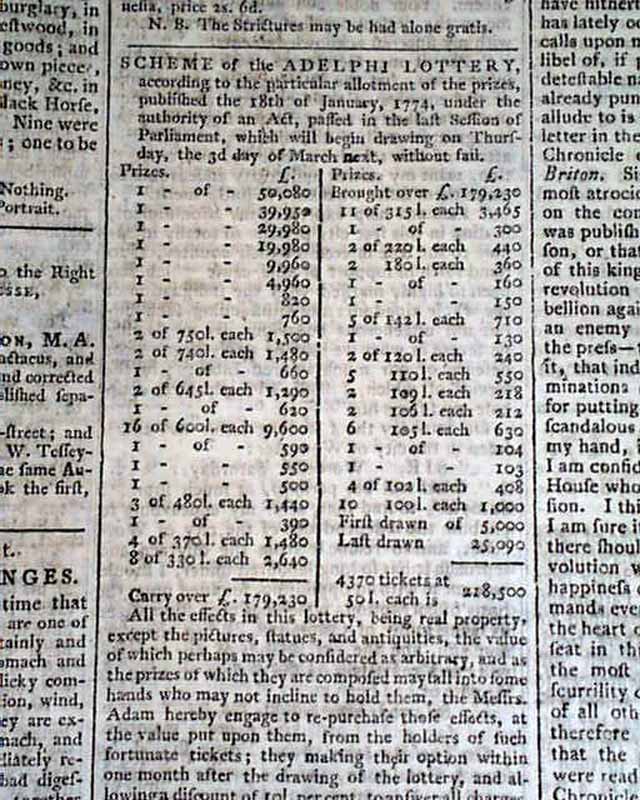 burglary, in
eſtwood, in
goods; and
own piece,
ney, &c. in
lack Horſe,
Nine were
; one to be
Nothing.
Portrait.
o the Right
ESSE,
ON, M. A.
actacus, and
nd corrected
bliſhed ſepa-
-ſtreet; and
W. Teſſey-
he ſame Au-
ok the firſt,
t.
NGES.
time that
are one of
tainly and
omach and
licky com-
ion, wind,
ey are ex-
mach, and
liately re-
bad digeſ-
together
neſia, price 2s. 6d.
N. B. The Strictures may be had alone gratis.
SCHEME of the ADELPHI LOTTERY,
according to the particular allotment of the prizes,
publiſhed the 18th of January, 1774, under the
authority of an Act, paſſed in the laſt Seſſion of
Parliament, which will begin drawing on Thurſ-
day, the 3d day of March next, without fail.
Prizes. £.
1 - of - 50,080
1 - - 39,950
1 - - 29,980
1 - - 19,980
1 - - 9,960
1 - - 4,960
1 - - 820
1 - - 760
2 of 750l. each 1,500
2 of 740l. each 1,480
1 - of - 660
2 of 645l. each 1,290
1 - of - 620
16 of 600l. each 9,600
1 - of - 590
1 - - 550
1 - - 500
3 of 480l. each 1,440
1 - of - 390
4 of 370l. each 1,480
8 of 330l. each 2,640
Carry over £. 179,230
Prizes. £.
Brought over £. 179,230
11 of 315l. each 3,465
1 - of - 300
2 of 220l. each 440
2 180l. each 360
1 - of - 160
1 - - 150
5 of 142l. each 710
1 - of - 130
2 of 120l. each 240
5 110l. each 550
2 109l. each 218
2 106l. each 212
6 105l. each 630
1 - of - 104
1 - - 103
4 of 102l. each 408
10 100l. each 1,000
Firſt drawn of 5,000
Laſt drawn 25,090
4370 tickets at
50l. each is 218,500
All the effects in this lottery, being real property,
except the pictures, ſtatues, and antiquities, the value
of which perhaps may be conſidered as arbitrary, and as
the prizes of which they are compoſed may fall into ſome
hands who may not incline to hold them, the Meſſrs.
Adam hereby engage to re-purchaſe thoſe effects, at
the value put upon them, from the holders of ſuch
fortunate tickets; they making their option within
one month after the drawing of the lottery, and al-
lowing a diſcount of 10l. per cent. to anſwer all charges
have hithert
has lately c
calls upon n
libel of, if p
deteſtable n
already pun
allude to is
letter in the
Chronicle
Briton. Si
moſt atrocio
on the con
was publiſh
ſon, or that
of this king
revolution
bellion agai
an enemy
the preſs—t
it, that ind
minations
for putting
ſcandalous
my hand, i
I am confid
Houſe who
ſion. I thi
I am ſure i
there ſhoul
volution w
happineſs
mands eve
the heart
ſeat in thi
the moſt
ſcurrility
of all oth
therefore
that the
were read
Chronicle